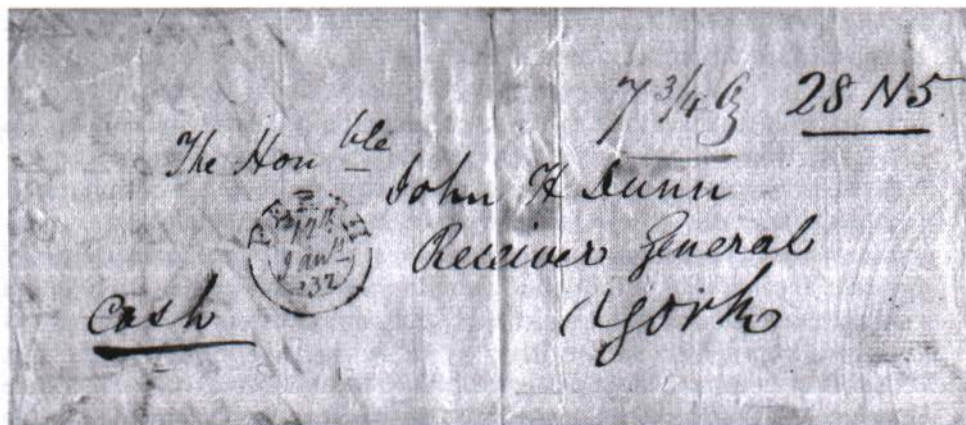 7 3/4 Oz 28 N 5
The Honble
John H Dunn
Receiver General
York
17th
Jany
32
Cash